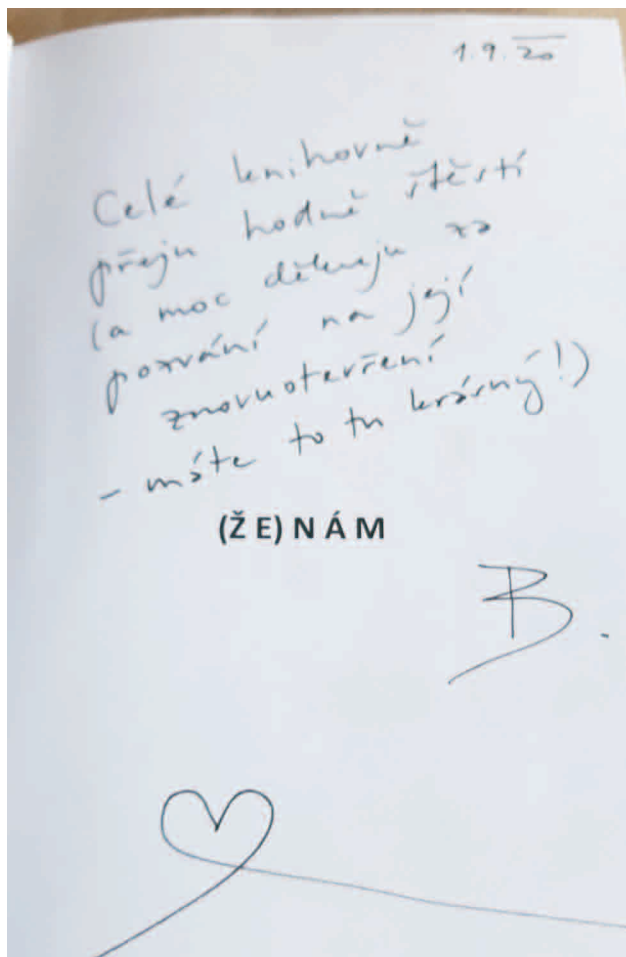 1.9.20
Celé knihovně
přeju hodně štěstí
(a moc děkuju za
pozvání na její
znovuotevření
- máte to tu krásný!)
(ŽE)NÁM
B.